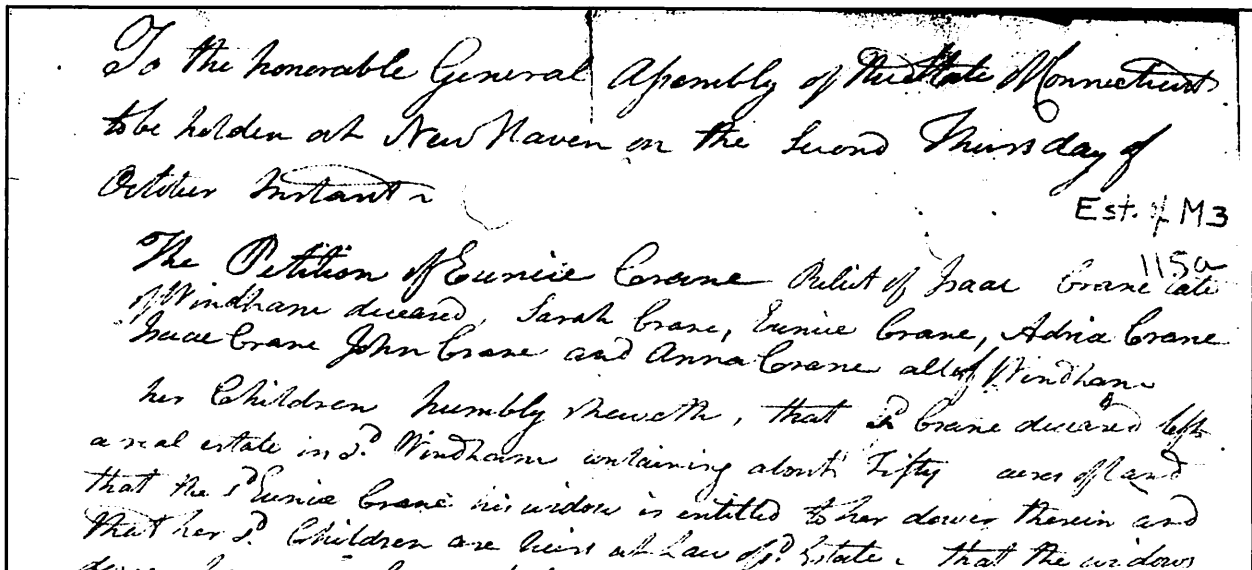 To the honorable General Assembly of the State of Connecticut
to be holden at New Haven on the Second Thursday of
October Instant
Est. of M3
115a
The Petition of Eunice Crane Relict of Isaac Crane late
of Windham deceased, Sarah Crane, Eunice Crane, Adria Crane
Isaac Crane John Crane and Anna Crane all of Windham
her Children humbly sheweth, that sd Crane deceased left
a real estate in sd. Windham containing about Fifty acres of land
that the sd Eunice Crane his widow is entitled to her dower therein and
that her sd. Children are heirs at Law of sd. Estate, that the widows